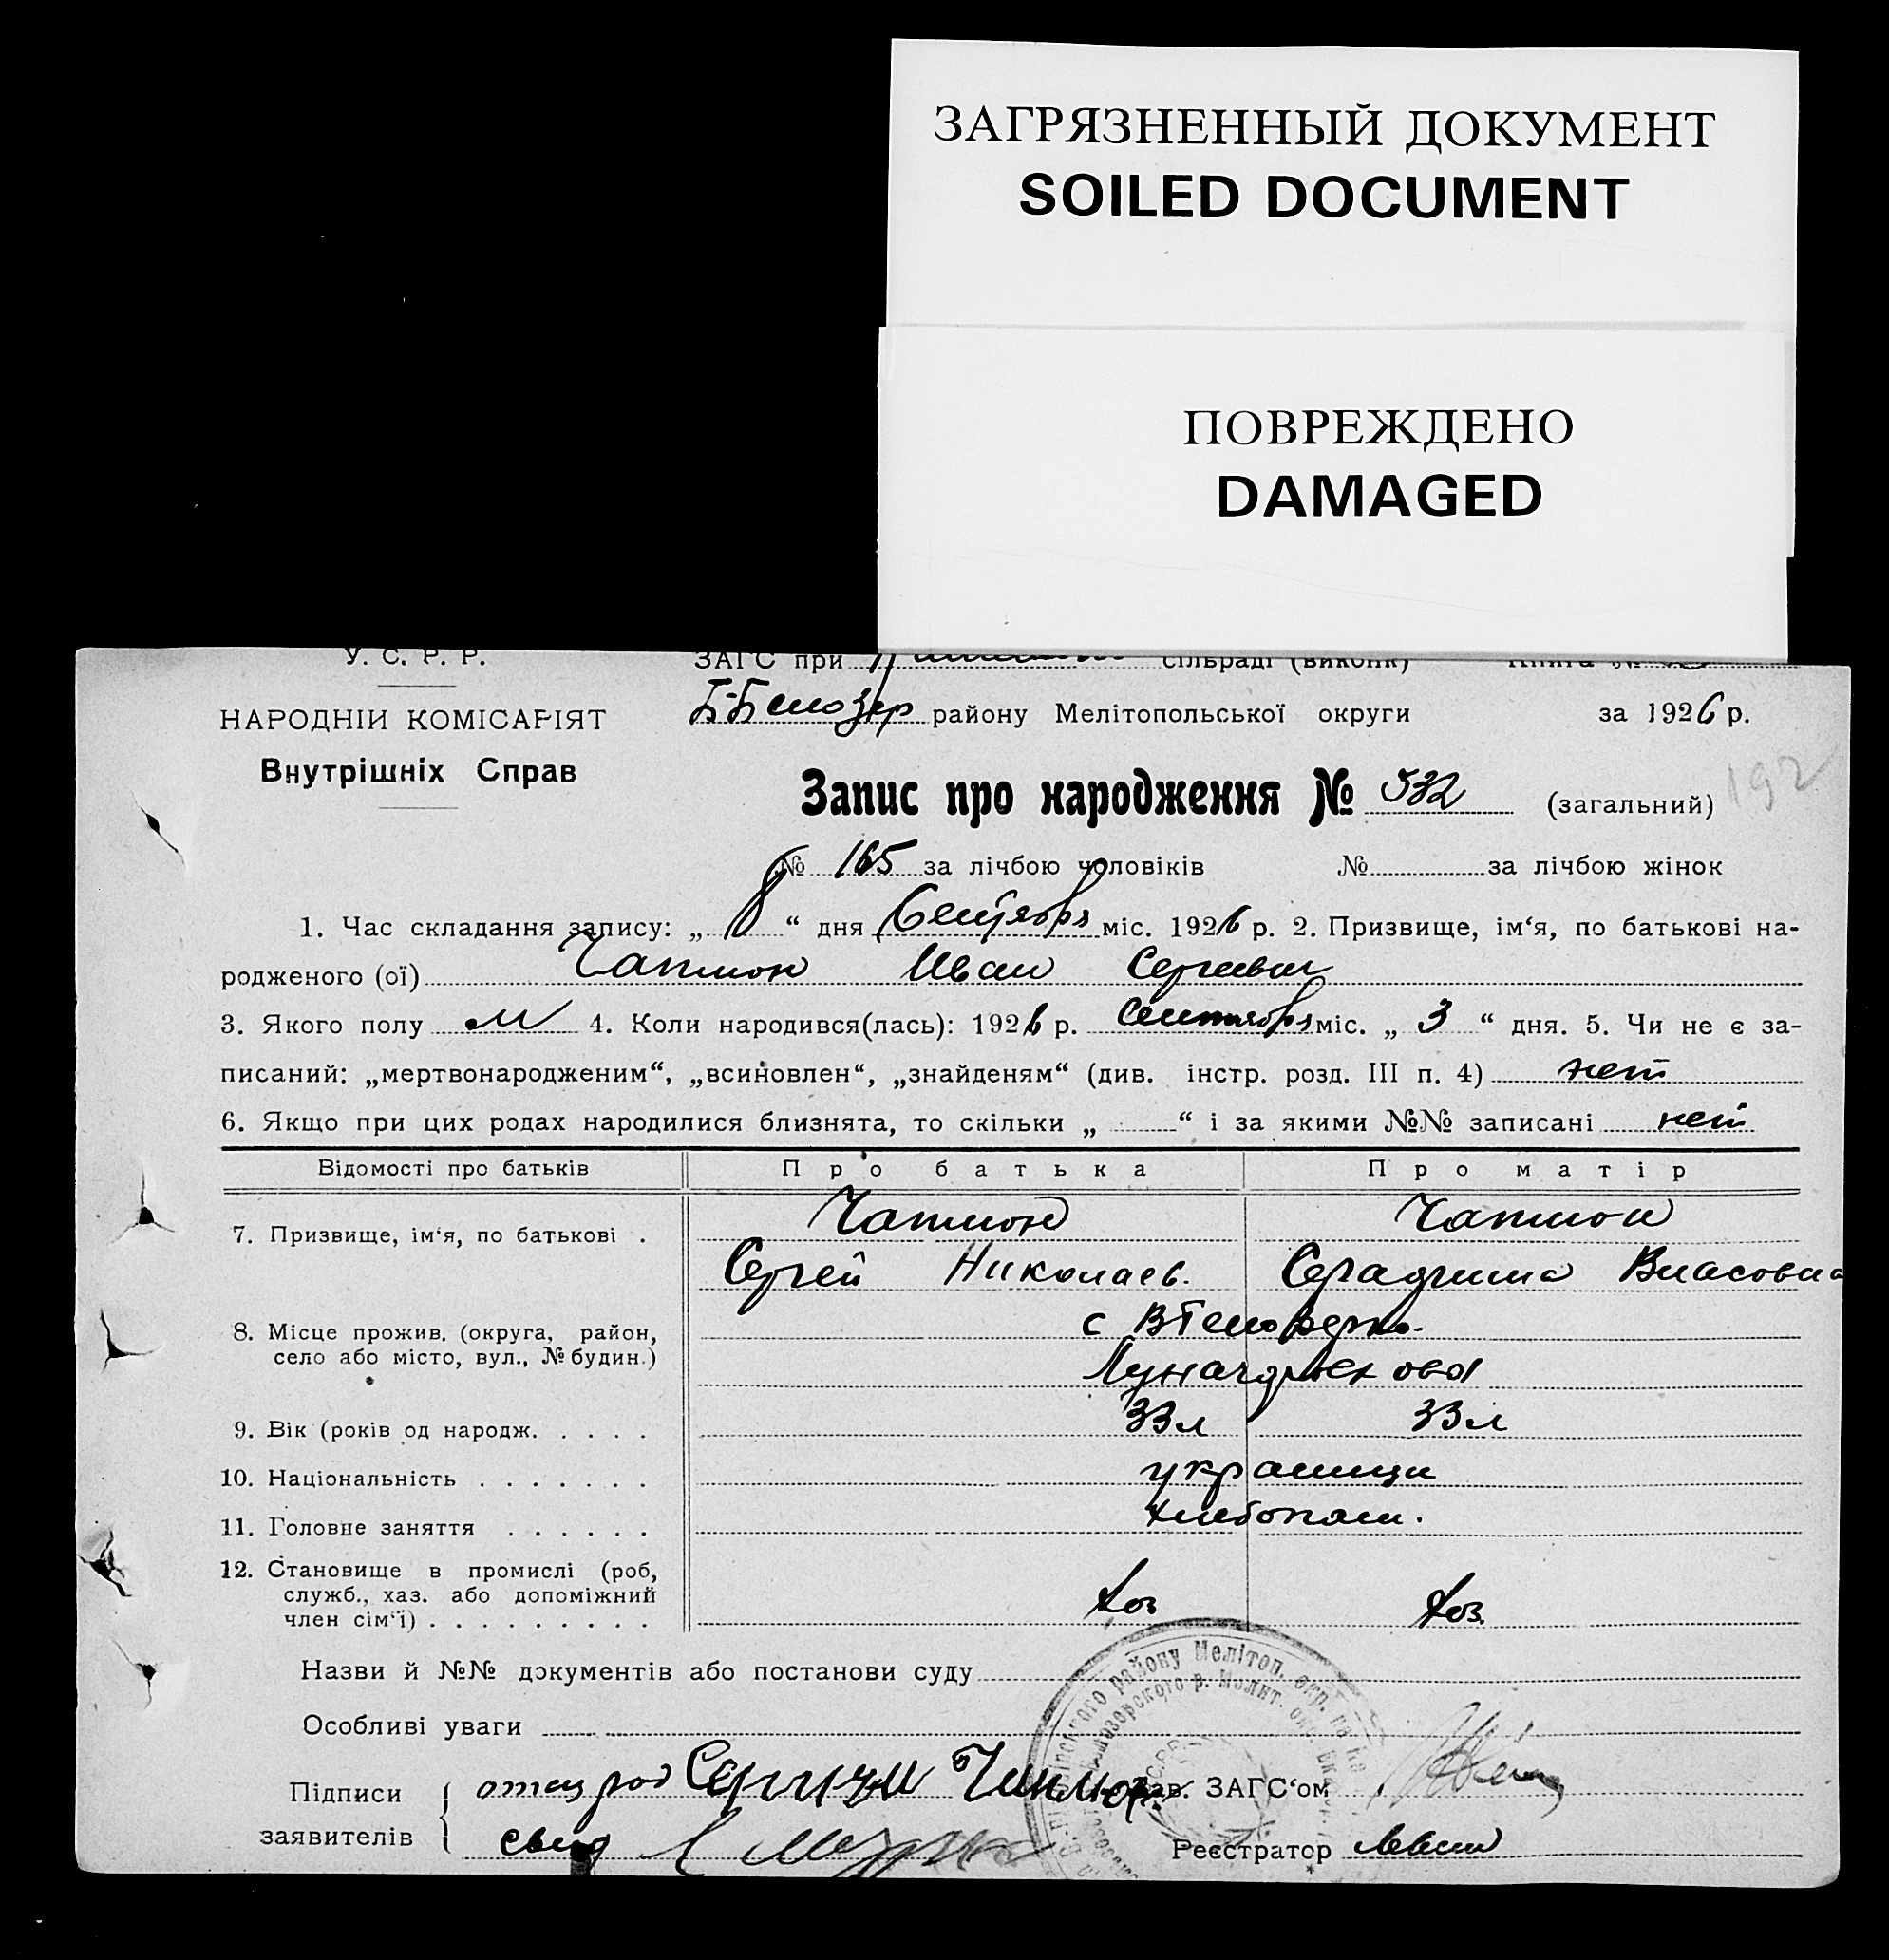 ЗАГРЯЗНЕННЫЙ ДОКУМЕНТ
SOILED DOCUMENT
ПОВРЕЖДЕНО
DAMAGED
У. С. Р. Р. ЗАГС при сільраді (виконк) Книга №
НАРОДНІЙ КОМІСАРІЯТ
Б-Белозер району Мелітопольської округи за 1926 р.
Внутрішніх Справ
Запис про народження № 532 (загальний)
192
№ 165 за лічбою чоловіків № за лічбою жінок
1. Час складання запису: „ 8 “ дня Сентября міс. 1926 р. 2. Призвище, ім‘я, по батькові на-
родженого (ої) Иван Сергеевич
3. Якого полу м 4. Коли народився(лась): 1926 р. Сентября міс. „ 3 “ дня. 5. Чи не є за-
писаний: „мертвонародженим“, „всиновлен“, „знайденям“ (див. інстр. розд. III п. 4) нет
6. Якщо при цих родах народилися близнята, то скільки „ “ і за якими №№ записані нет
Відомості про батьків Про батька Про матір
7. Призвище, ім‘я, по батькові .
Сергей Николаев. Власовна
8. Місце прожив. (округа, район,
село або місто, вул., № будин.)
9. Вік (років од народж. . . . . 33л 33л
10. Національність . . . . . . . украинци
11. Головне заняття . . . . . . хлебопаш.
12. Становище в промислі (роб,
служб., хаз. або допоміжний
член сім‘ї) . . . . . . . . . хоз хоз.
Назви й №№ документів або постанови суду
Особливі уваги
Підписи
заявителів
отец
Зав. ЗАГС‘ом
свид
Реєстратор
району Мелітоп. окр.